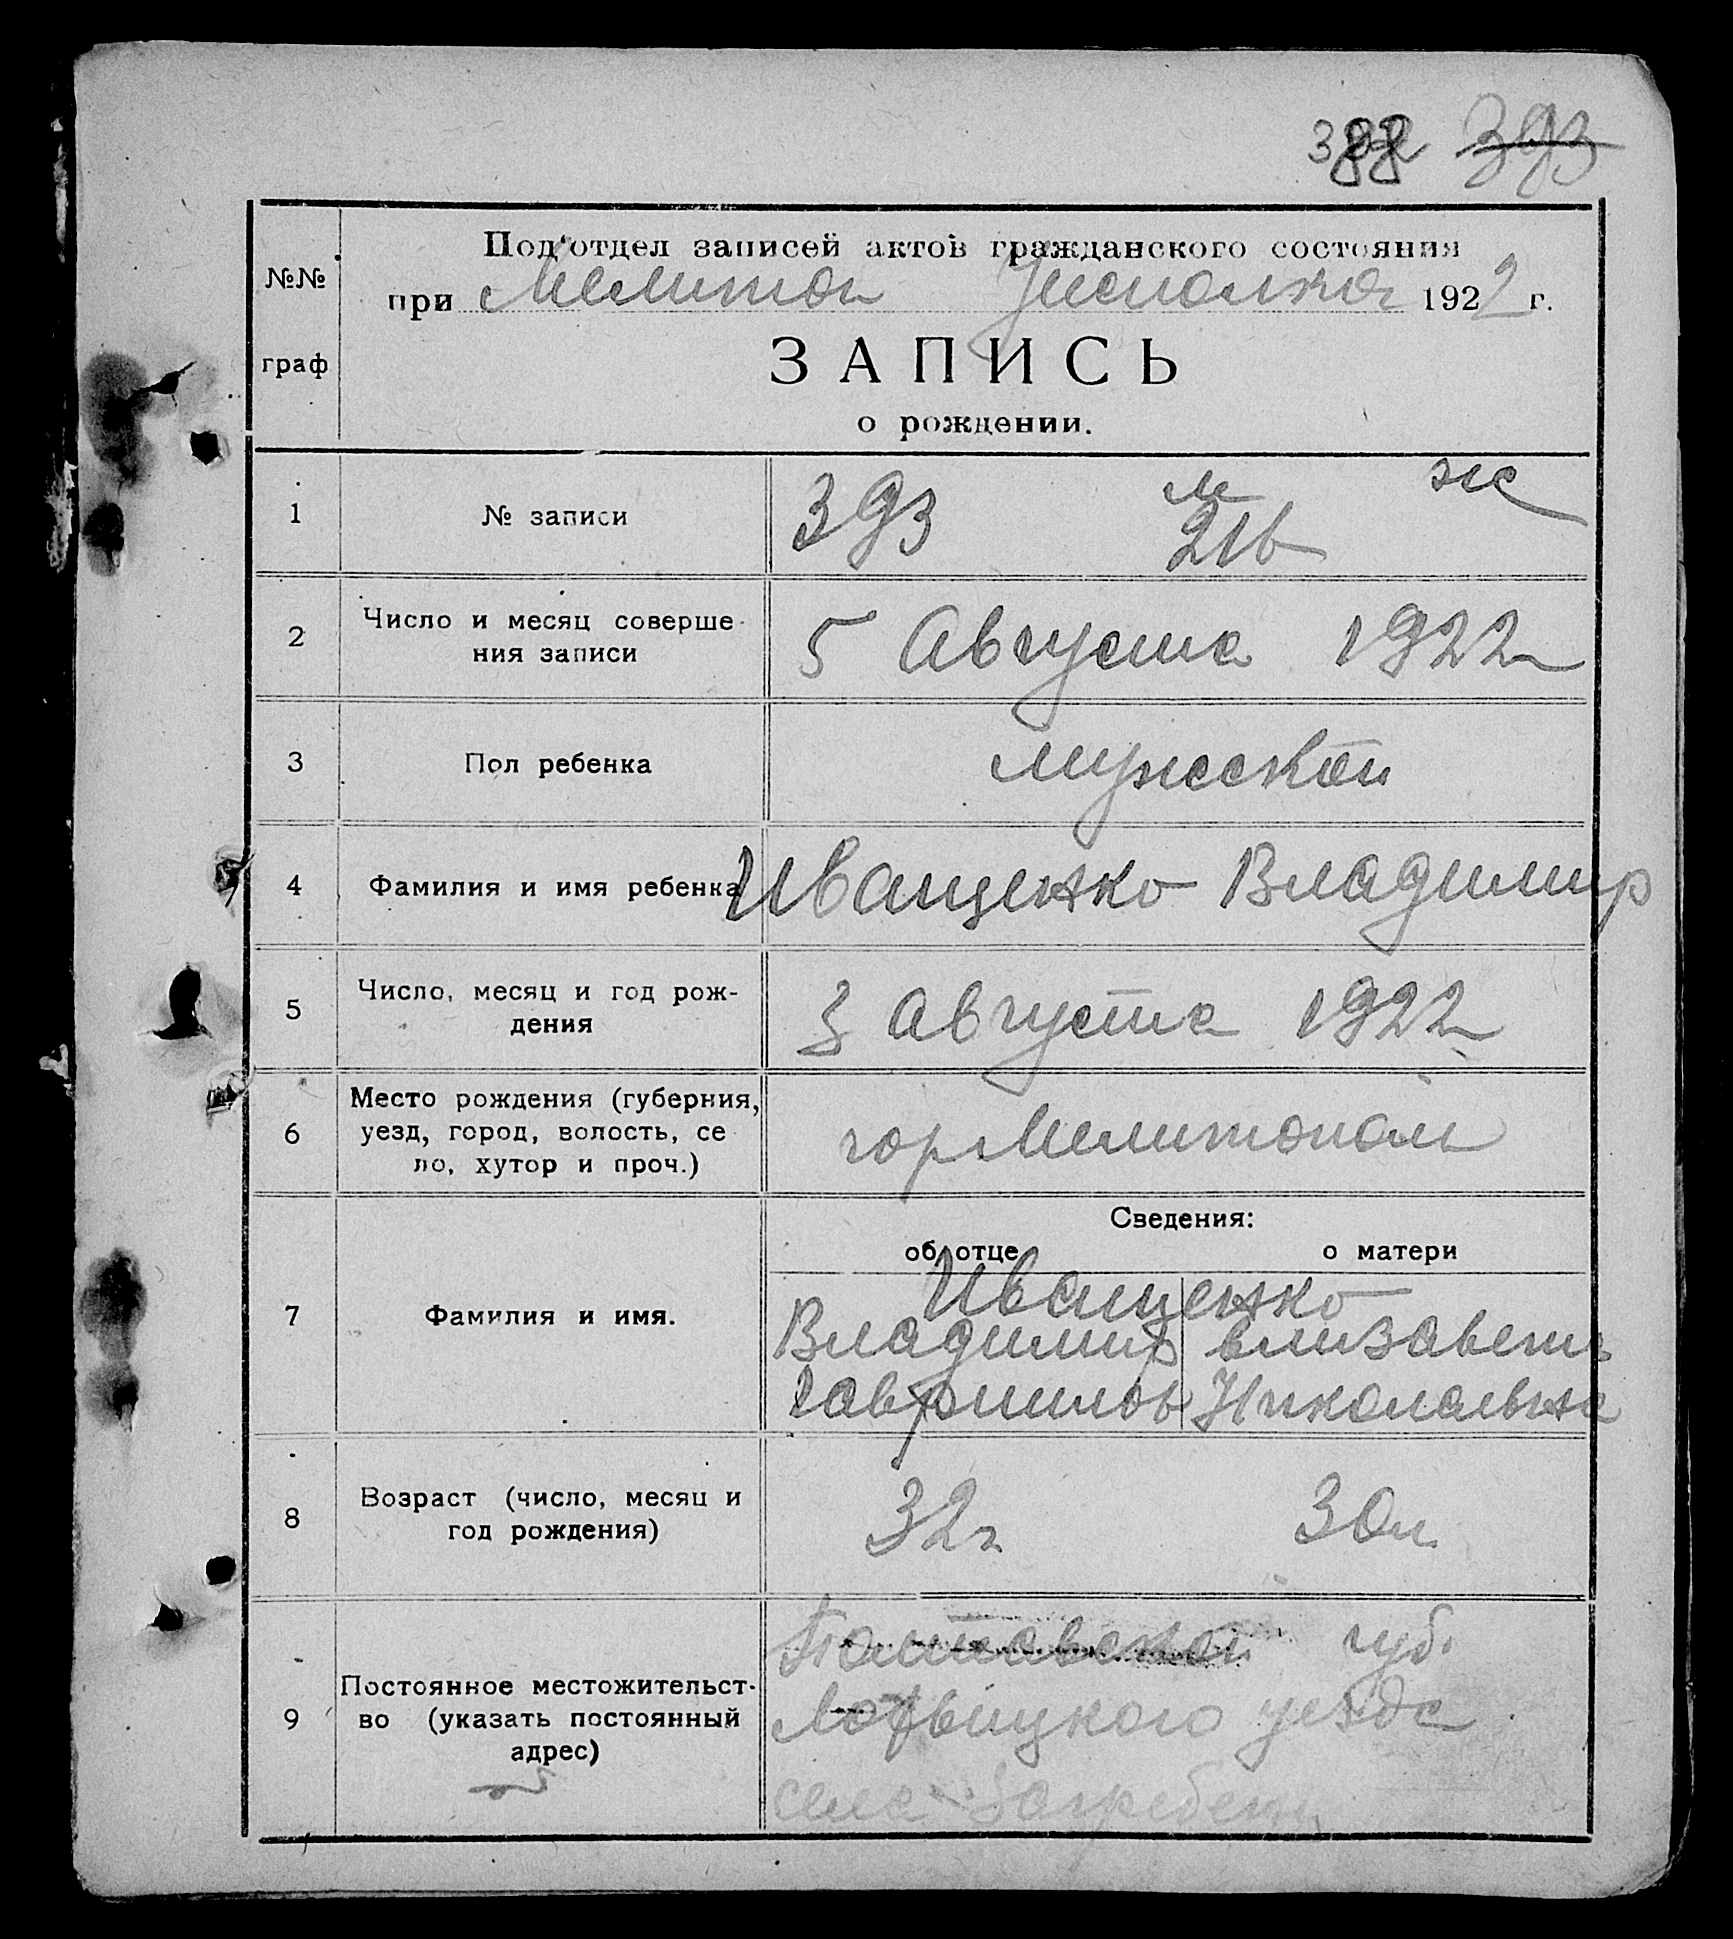 388 393
№№ граф
Под'отдел записей актов гражданского состояния
при Мелитоп Уисполка 1922 г.
ЗАПИСЬ
о рождении.
1 № записи 393 м ж
216
2 Число и месяц соверше-
ния записи 5 Августа 1922
3 Пол ребенка мужской
4 Фамилия и имя ребенка Иващенко Владимир
5 Число, месяц и год рож-
дения 3 Августа 1922
6 Место рождения (губерния,
уезд, город, волость, се
ло, хутор и проч.) гор Мелитополь
Сведения:
об отце о матери
7 Фамилия и имя. Иващенко
Владимир Елизавета
Гаврилов Николаевна
8 Возраст (число, месяц и
год рождения) 32г 30л
9 Постоянное местожительст-
во (указать постоянный
адрес) Полтавской губ.
Лохвицкого уезда
села